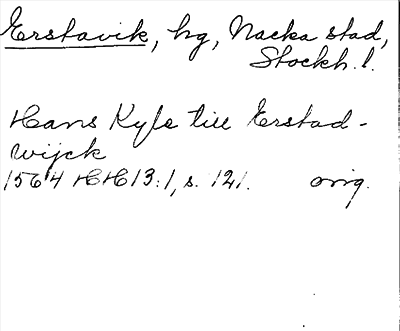 Erstavik, hg, Nacka stad,
Stockh. l.
Hans Kyle till Erstad-
wijck
1564 HH13:1, s. 121. orig.